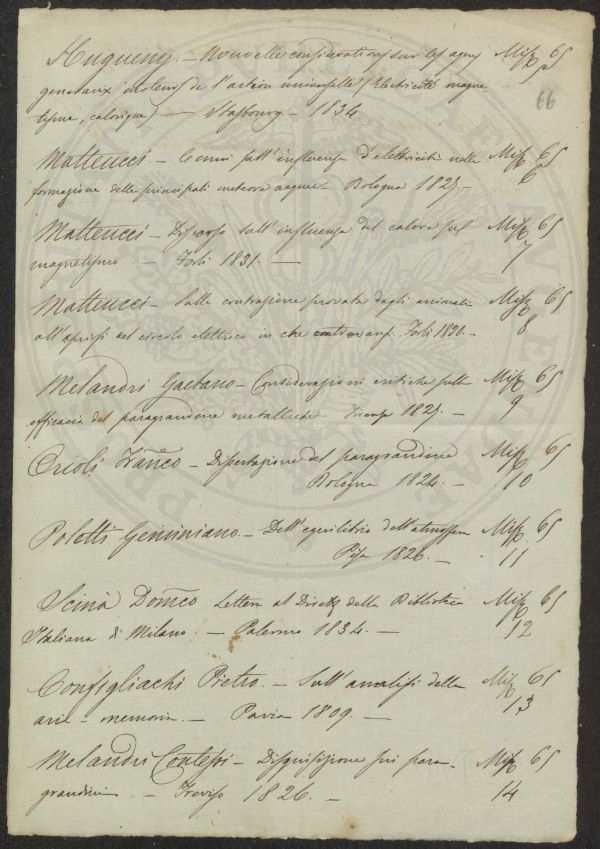 Hugueny. - Nouvelle considerations sur les agens Misc 65
generaux moteurs de l'action universelle (Electricité magne- 5
tisme, calorique) — Strasbourg - 1834
66
Matteucci - Cenni sull'influenza d'elettricità nella Misc 65
formazione delle principali meteore acquee Bologna 1825. - 6
Matteucci - Discorso sull'influenza del calore sul Misc 65
magnetismo. - Forlì 1831. — 7
Matteucci - Sulla contrazione provata dagli animali Misc 65
all'aprirsi del circolo elettrico in che Forlì 1830. - 8
Melandri Gaetano - Considerazioni critiche sulla Misc 65
efficacia del paragrandine metallico 1825. — 9
Orioli Franco - Dissertazione del paragrandine Misc 65
Bologna 1824. — 10
Poletti Geminiano - Dell'equilibrio dell'atmosfera Misc 65
Pisa 1826. — 11
Scinà Domco Lettera al Dirett della Biblioteca Misc 65
Italiana di Milano. - Palermo 1834. — 12
Configliachi Pietro. - Sull'analisi della Misc 65
aria - memoria. - Pavia 1809. — 13
Melandri Contessi - Disquisizione sui para- Misc 65
grandini - Treviso 1826. — 14